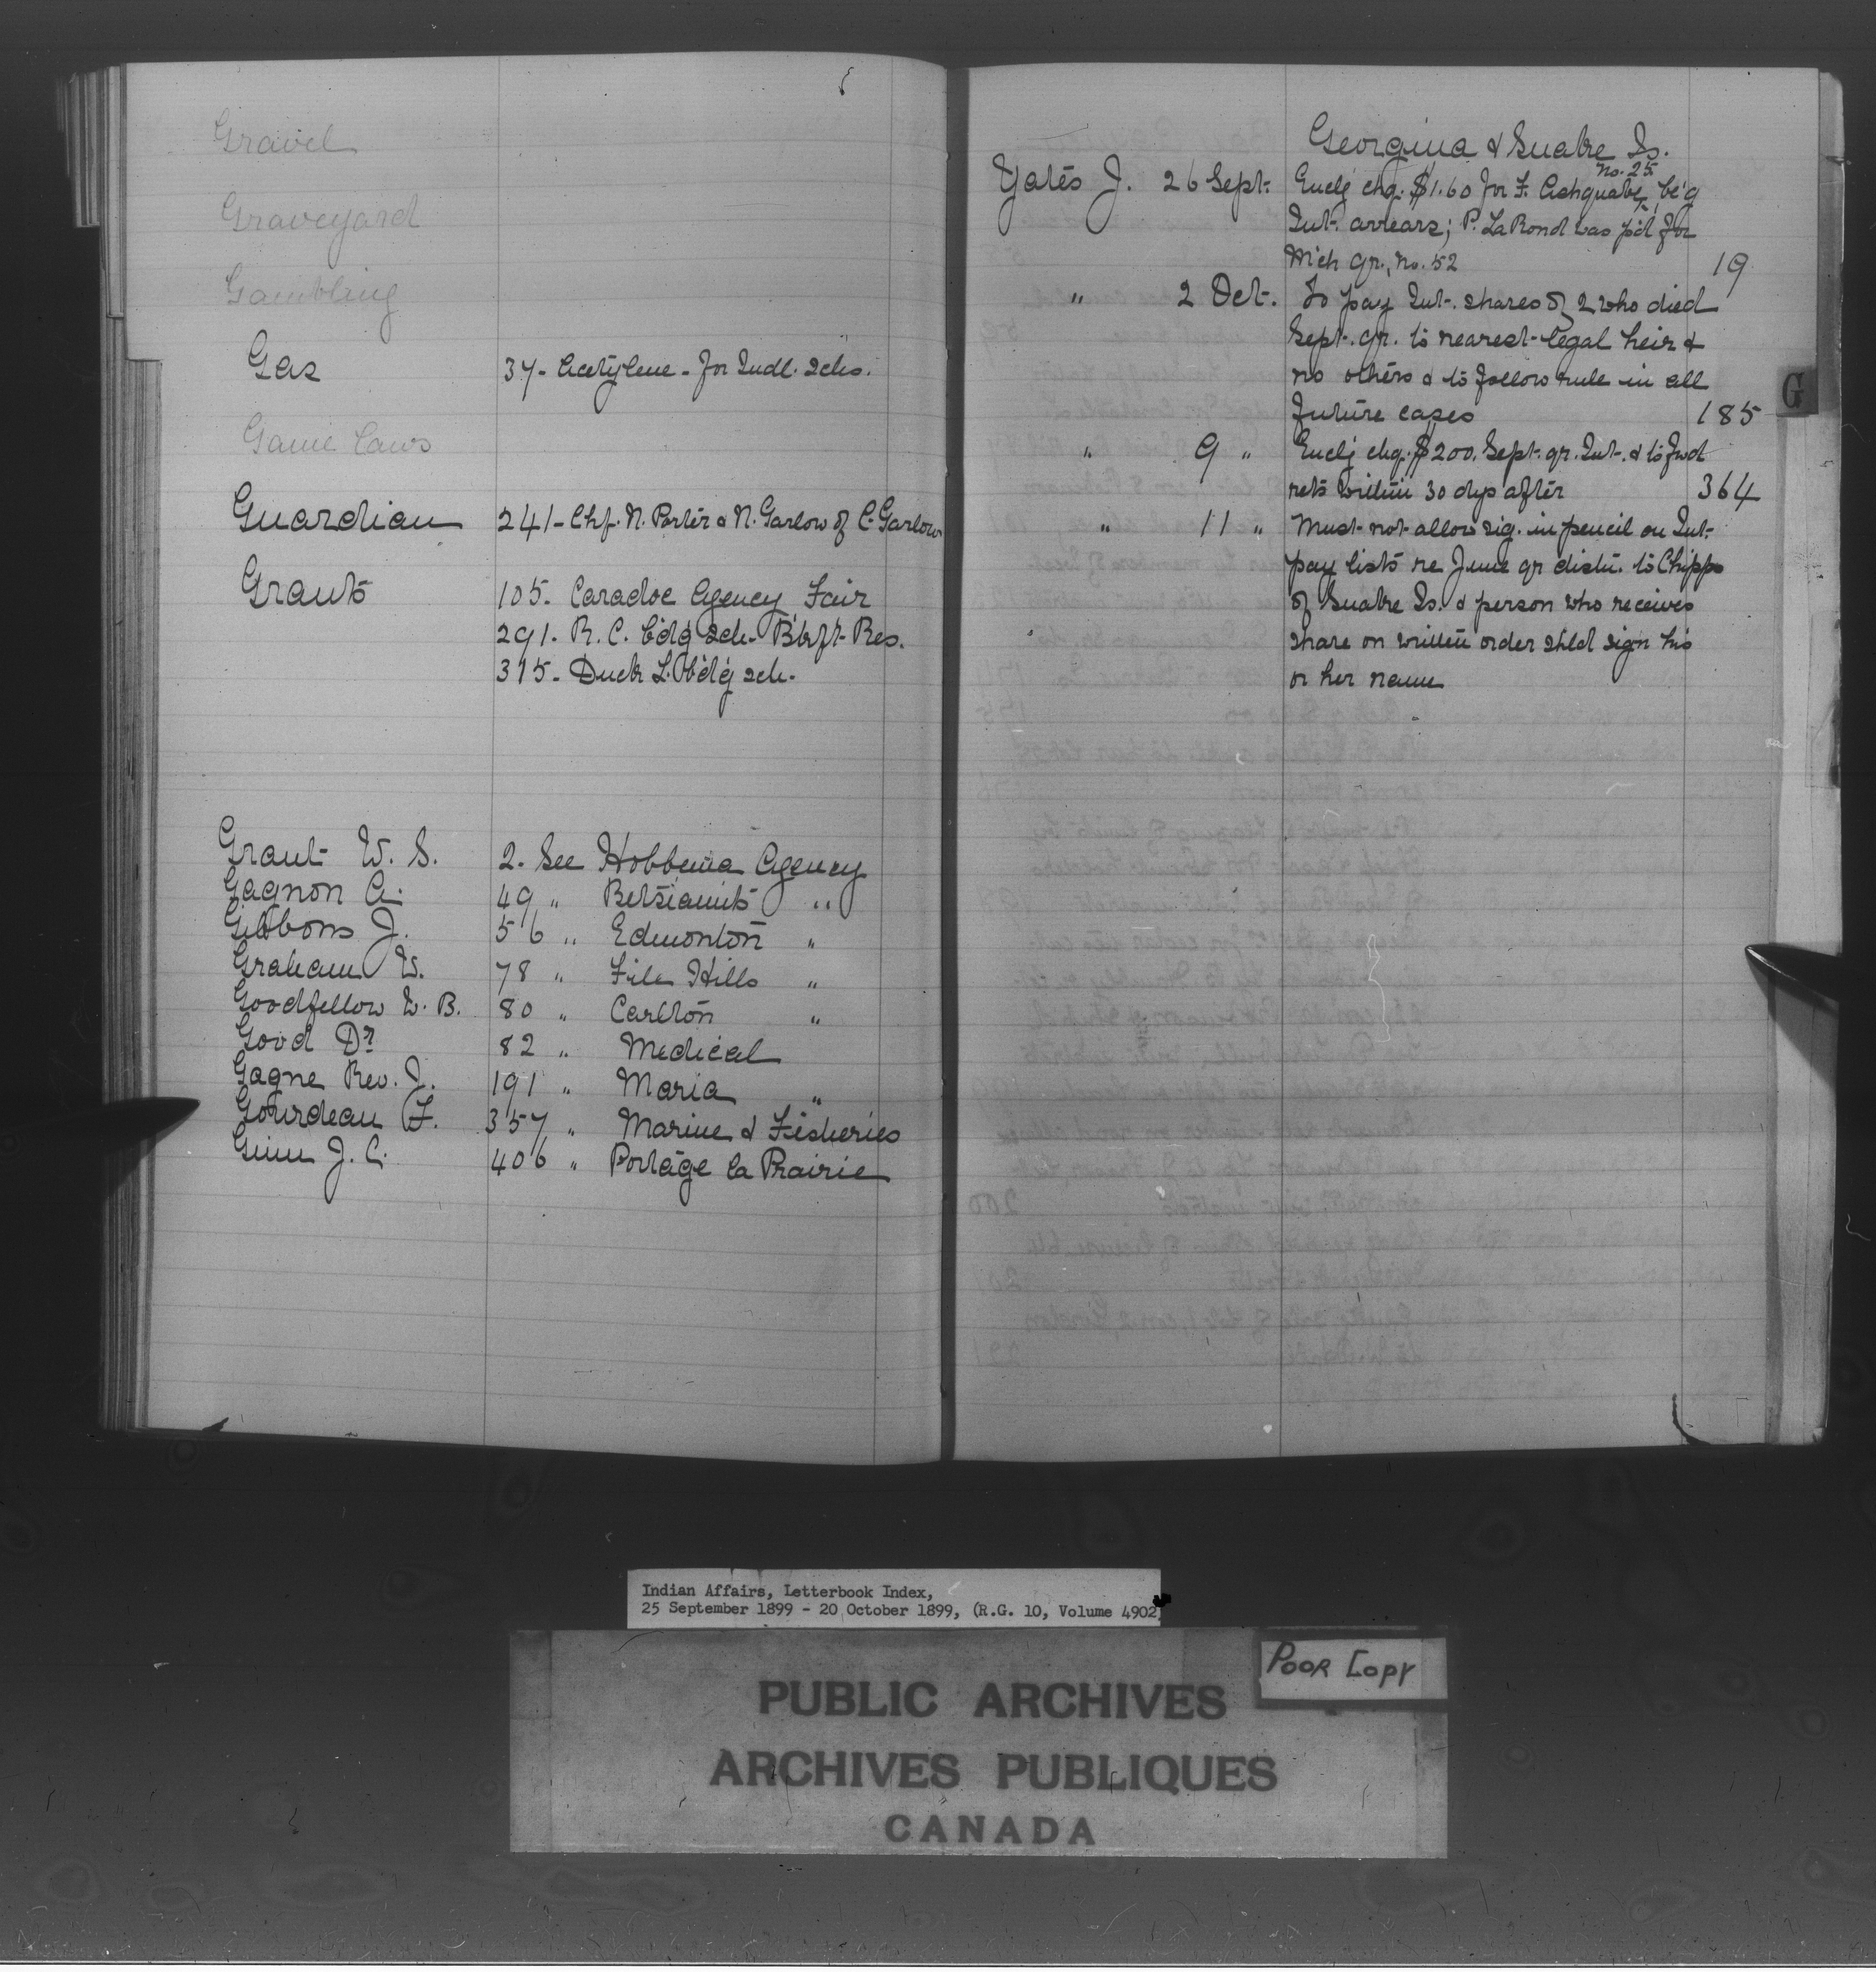 Gravel
Graveyard
Gambling
Gas 37 - Acetylene - for Indl. Schs.
Game Laws
Guardian 241 - Chf. N. Porter & N. Garlow of C. Garlow
Grants 105. Caradoc Agency Fair
291. R. C. bdg sch. Bkft Res.
315. Duck L. bdg sch.
Grant W. S. 2. See Hobbema Agency
Gagnon A. 49 " Betsiamits "
Gibbons J. 56 " Edmonton "
Graham W. 78 " File Hills "
Goodfellow W. B. 80 " Carlton "
Good Dr. 82 " Medical
Gagne Rev. J. 191 " Maria "
Gourdeau F. 357 " Marine & Fisheries
Ginn J. C. 406 " Portage la Prairie
Georgina & Snake Is.
No. 25
Yates J. 26 Sept. Enclg chq. $1.60 for F. Ashquabe, be'g
Int. arrears; P. LaRond was p'd for
Mich qr., no. 52 19
" 2 Oct. To pay Int. shares of 2 who died
Sept. qr. to nearest legal heir &
no others & to follow rule in all
future cases 185
G
" 9 " Enclg chq. $200. Sept. qr. Int. & to fwd
rets within 30 dys after 364
" 11 " Must not allow sig. in pencil on Int.
pay lists re June qr distn. to Chipps
of Snake Is. & person who receives
share on written order shld sign his
or her name
Indian Affairs, Letterbook Index,
25 September 1899 - 20 October 1899, (R.G. 10, Volume 4902)
Poor Copy
PUBLIC ARCHIVES
ARCHIVES PUBLIQUES
CANADA